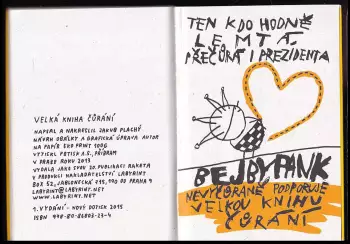 VELKÁ KNIHA ČŮRÁNÍ
NAPSAL A NAKRESLIL JAKUB PLACHÝ
NÁVRH OBÁLKY A GRAFICKÁ ÚPRAVA AUTOR
NA PAPÍR EKO PRINT 100G
VYTISKL PETISK A.S., PŘÍBRAM
V PRAZE ROKU 2013
VYDALA JAKO SVOU 20. PUBLIKACI RAKETA
V PRODUKCI NAKLADATELSTVÍ LABYRINT
BOX 52, JABLONECKÁ 715, 190 00 PRAHA 9
LABYRINT@LABYRINT.NET
WWW.LABYRINT.NET
1. VYDÁNÍ - NOVÝ DOTISK 2015
ISBN 978-80-86803-23-4
TEN KDO HODNĚ
LEMTÁ,
PŘEČŮRÁ I PREZIDENTA
BEJBYPANK
NEVYČŮRANĚ PODPORUJE
VELKOU KNIHU
ČŮRÁNÍ